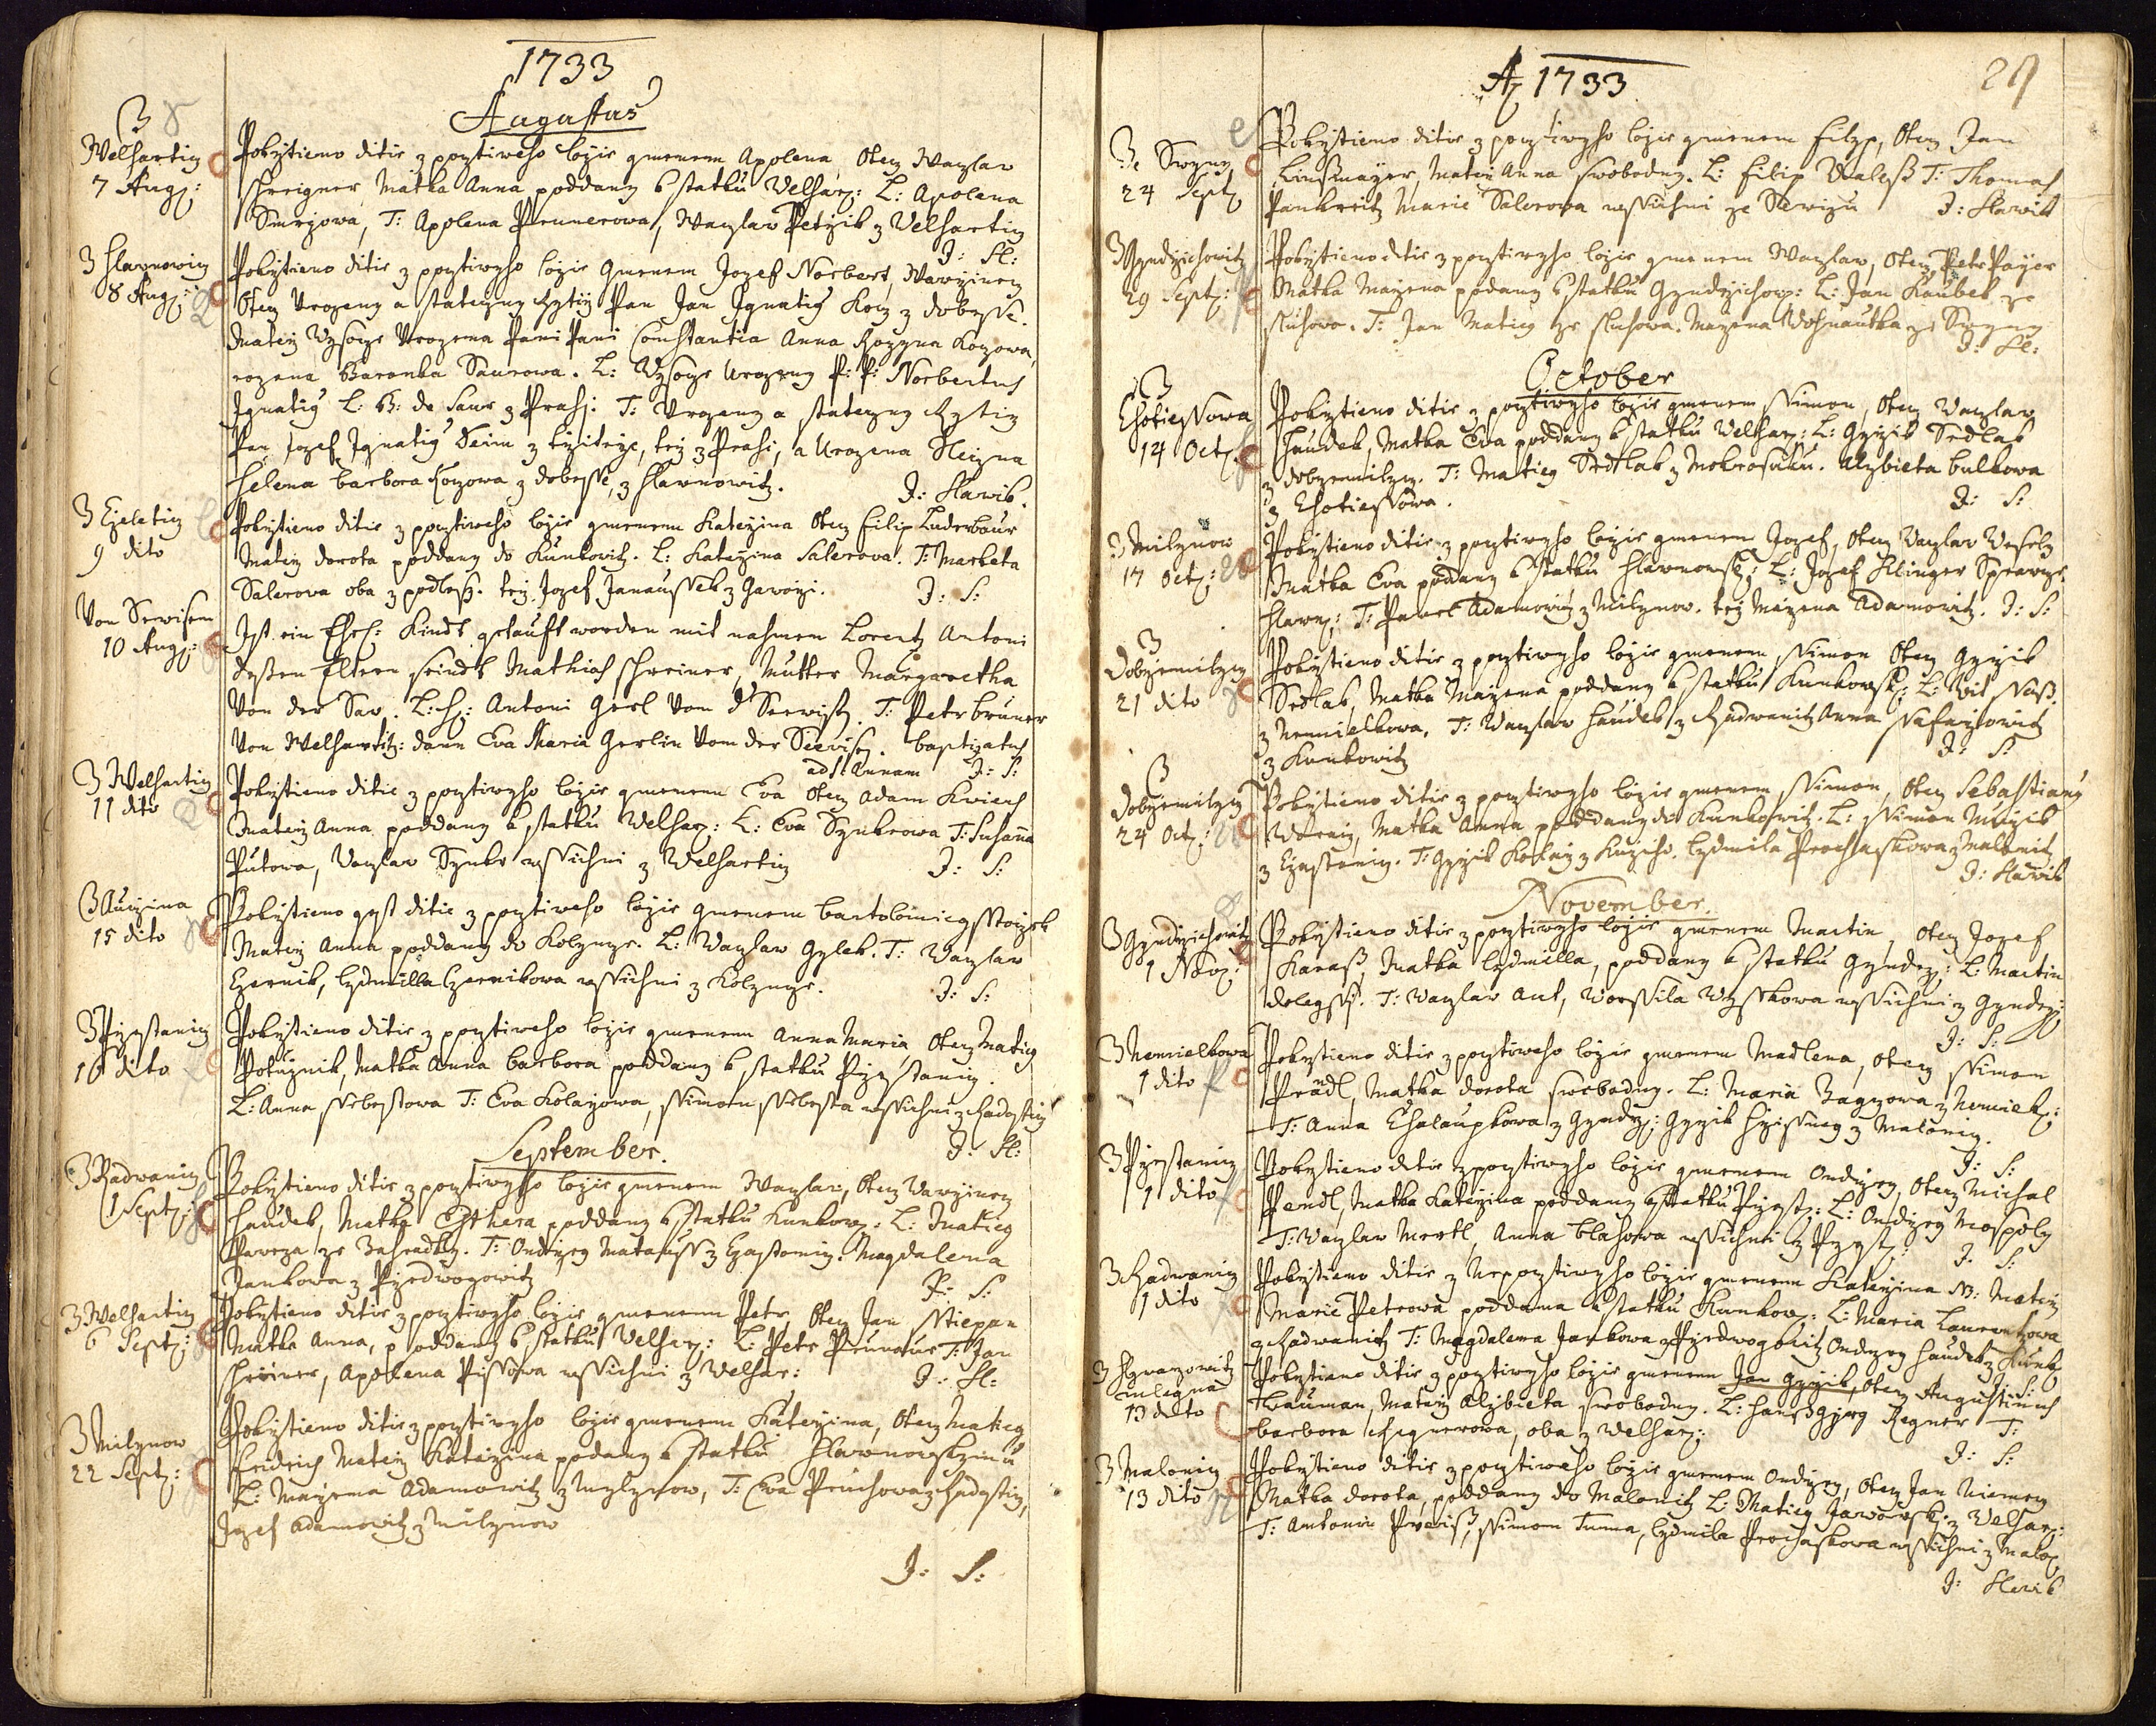 1733
Augustus
Z
Welhartiz
7 Aug:
Pokrztieno ditie z pocztiweho loze gmenem Apolena, Otecz Waczlav
Schreigner, Matka Anna poddany k statku Welhar: L: Apolena
Smrzowa, T: Apolena Prunerowa, Waczlav Petrzik z Welhartiz
J: Sl:
Z Hlawnowiz
8 Aug:
Pokrztieno ditie z pocztiweho loze gmenem Jozef Norbert, Wawrzinecz
Otecz Urozeny a stateczny Rytirz Pan Jan Ignatius Kocz z Dobrsse.
Materz Wysocze Urozena Pani Pani Constantia Anna Kocowa,
rozena Baronka Saurowa. L: Wysocze Urozeny P: P: Norbertus
Ignatius L: B: de Saur z Prahi. T: Urozeny a stateczny Rytirz
Pan Jozef Ignatius Deim z Strzitezie, tez z Prahi, a Urozena Sleczna
Helena Barbora Koczowa z Dobrsse, z Hlawnowitz.
J: Slawik.
Z Czeletiz
9 dito
Pokrztieno ditie z pocztiweho loze gmenem Katerzina Otecz Filip Luderbaur
Materz Dorota poddany do Kunkowitz. L: Katerzina Salerova. T: Marketa
Salerova oba z Podless. tez Jozef Janaussek z Jaworzi.
J: S:
Von Sewisen
10 Aug:
Ist ein Ehel: Kindt getaufft worden mit nahmen Lorentz Antoni
dessen Eltern seindt Mathias Schreiner, Mutter Margaretha
Von der Saw. L: H: Antoni Gerl Von d Seewisz. T: Petr Bruner
Von Welhartitz: dann Eva Maria Gerlin Von der Seewisz. baptizatus
ad S. Annam J: S:
Z Welhartiz
11 dito
Pokrztieno ditie z pocztiweho loze gmenem Eva Otecz Adam Kwiech
Materz Anna poddany k statku Welhar: L: Eva Szynkrowa T: Susanna
Putowa, Waczlav Szynkr wssichni z Welhartiz
J: S:
15 dito
Pokrztieno gest ditie z pocztiweho loze gmenem Bartolomieg
Materz Anna poddany do Koleyncze. L: Waczlav Gylek. T: Waczlav
Czernik, Lydmilla Czernikowa wssichni z Kolyncze.
J: S:
Z Przestaniz
16 dito
Pokrztieno ditie z pocztiweho loze gmenem Anna Maria, Otecz Matieg
Potuznik, Matka Anna Barbora poddany k statku Przestaniz.
L: Anna Siebestowa T: Eva Kolarzowa, Simon Siebesta wssichni z Hadostiz
J: Sl:
September.
Z Radwaniz
1 Sept:
Pokrztieno ditie z pocztiweho loze gmenem Waczlav, Otecz Wawrzinecz
Haudek, Matka Esthera poddany k statku Kunkow: L: Matieg
Pawcza ze Zahradky. T: Ondrzeg Matauss z Czastoniz. Magdalena
Jankowa z Przedwogowitz
J: S:
Z Welhartiz
6 Sept:
Pokrztieno ditie z pocztiweho loze gmenem Petr, Otecz Jan Stiepan
Matka Anna, poddany k statku Welhar: L: Petr Prunaur T: Jan
Schreiner, Apolena Pussowa wssichni z Welhar:
J: Sl:
Z Milynow
22 Sept:
Pokrztieno ditie z pocztiweho loze gmenem Katerzina, Otecz Matieg
Fridrich Materz Katerzina podany k statku Hlawnowskymu
L: Marzena Adamowitz z Mylynow, T: Eva Pruchowa z Hadostiz,
Jozef Adamowitz z Milynow
J: S:
A 1733
29
24 Sept
Pokrztieno ditie z pocztiweho loze gmenem Filip, Otecz Jan
Linssmayer, Materz Anna Swobodny. L: Filip Waless T: Thomas
Pankreitz Marie Salerowa wssichni ze Sewizu
J: Slawik
Z Gyndrzichowitz
29 Sept:
Pokrztieno ditie z pocztiweho loze gmenem Waczlav, Otecz Petr Payer
Matka Marzena podany k statku Gyndrzichow: L: Jan Kaubek ze
Sluhowa. T: Jan Matieg ze Sluhowa. Marzena Wohnautka ze
J: Sl:
October
Z
Chotiessowa
14 Oct:
Pokrztieno ditie z pocztiweho loze gmenem Simon, Otecz Waczlav
Haudek, Matka Eva poddany k statku Welhar: L: Gyrzik Sedlak
z Dobrzemilicz. T: Matieg Sedlak z Mokrosuku. Alzbieta Bulkowa
z Chotiessowa.
J: S:
Z Milynow
17 Oct:
Pokrztieno ditie z pocztiweho loze gmenem Jozef, Otecz Waczlav Wesely
Matka Eva poddany k statku Hlawnowsk: L: Jozef Klinger Sprawcze
Hlawn: T: Pawel Adamowitz z Milynow. tez Marzena Adamowitz. J: S:
Z
Dobrzemilicz
21 dito
Pokrztieno ditie z pocztiweho loze gmenem Simon Otecz Gyrzik
Sedlak, Matka Marzena poddany k statku Kunkowsk: L: Wit
z Nemielkowa, T: Waczlav Haudek z Radwanitz Anna Safarzowitz
z Kunkowitz
J: S:
Z
Dobrzemilicz
24 Oct:
Pokrztieno ditie z pocztiweho loze gmenem Simon, Otecz Sebastianus
Matka Anna poddany do Kunkowitz. L: Simon Muzik
z Czastoniz. T: Gyrzik Kolarz z Kuziho. Lydmila Prochaskowa z Malonitz
J: Slawik
November.
Z Gyndrzichowitz
1 Nov:
Pokrztieno ditie z pocztiweho loze gmenem Martin, Otecz Jozef
Karass, Matka Lydmilla, poddany k statku Gyndrz: L: Martin
Dolegss. T: Waczlav Aut, Worssila Wysskowa wssichni z Gyndrz:
J: S:
Z Nemielkowa
1 dito
Pokrztieno ditie z pocztiweho loze gmenem Madlena, Otecz Simon
Prändl, Matka Dorota Swobodny. L: Maria Zagyczowa z Nemielk:
T: Anna Chalaupkowa z Gyndrz: Gyrzik z Maloniz.
J: S:
Z Przestaniz
1 dito
Pokrztieno ditie z pocztiweho loze gmenem Ondrzeg, Otecz Michal
Pendl, Matka Katerzina poddany k statku Przest: L: Ondrzeg Mospoly
T: Waczlav Mertl, Anna Blahowa wssichni z Przest:
J: S:
Z Radwaniz
1 dito
Pokrztieno ditie z Nepocztiweho loze gmenem Katerzina NB: Materz
Marie Petrowa poddana k statku Kunkow: L: Maria Laurentzowa
z Radwanitz T: Magdalena Jankowa z Przedwogowitz Ondrzeg Haudek z Kunk
J: S:
13 dito
Pokrztieno ditie z pocztiweho loze gmenem Jan Gyrzik, Otecz Augustinus
Trauman, Materz Alzbieta Swobodny. L: Hanssgyrg Regner T:
Barbora Regnerowa, oba z Welhar:
J: S:
Z Maloniz
13 dito
Pokrztieno ditie z pocztiweho loze gmenem Ondrzeg, Otecz Jan Niemecz
Matka Dorota, poddany do Malonitz L: Matieg Jaworsky z Welhar:
T: Antonin Preiss, Simon Tuma, Lydmila Prochaskowa wssichni z Malo:
J: Slawik